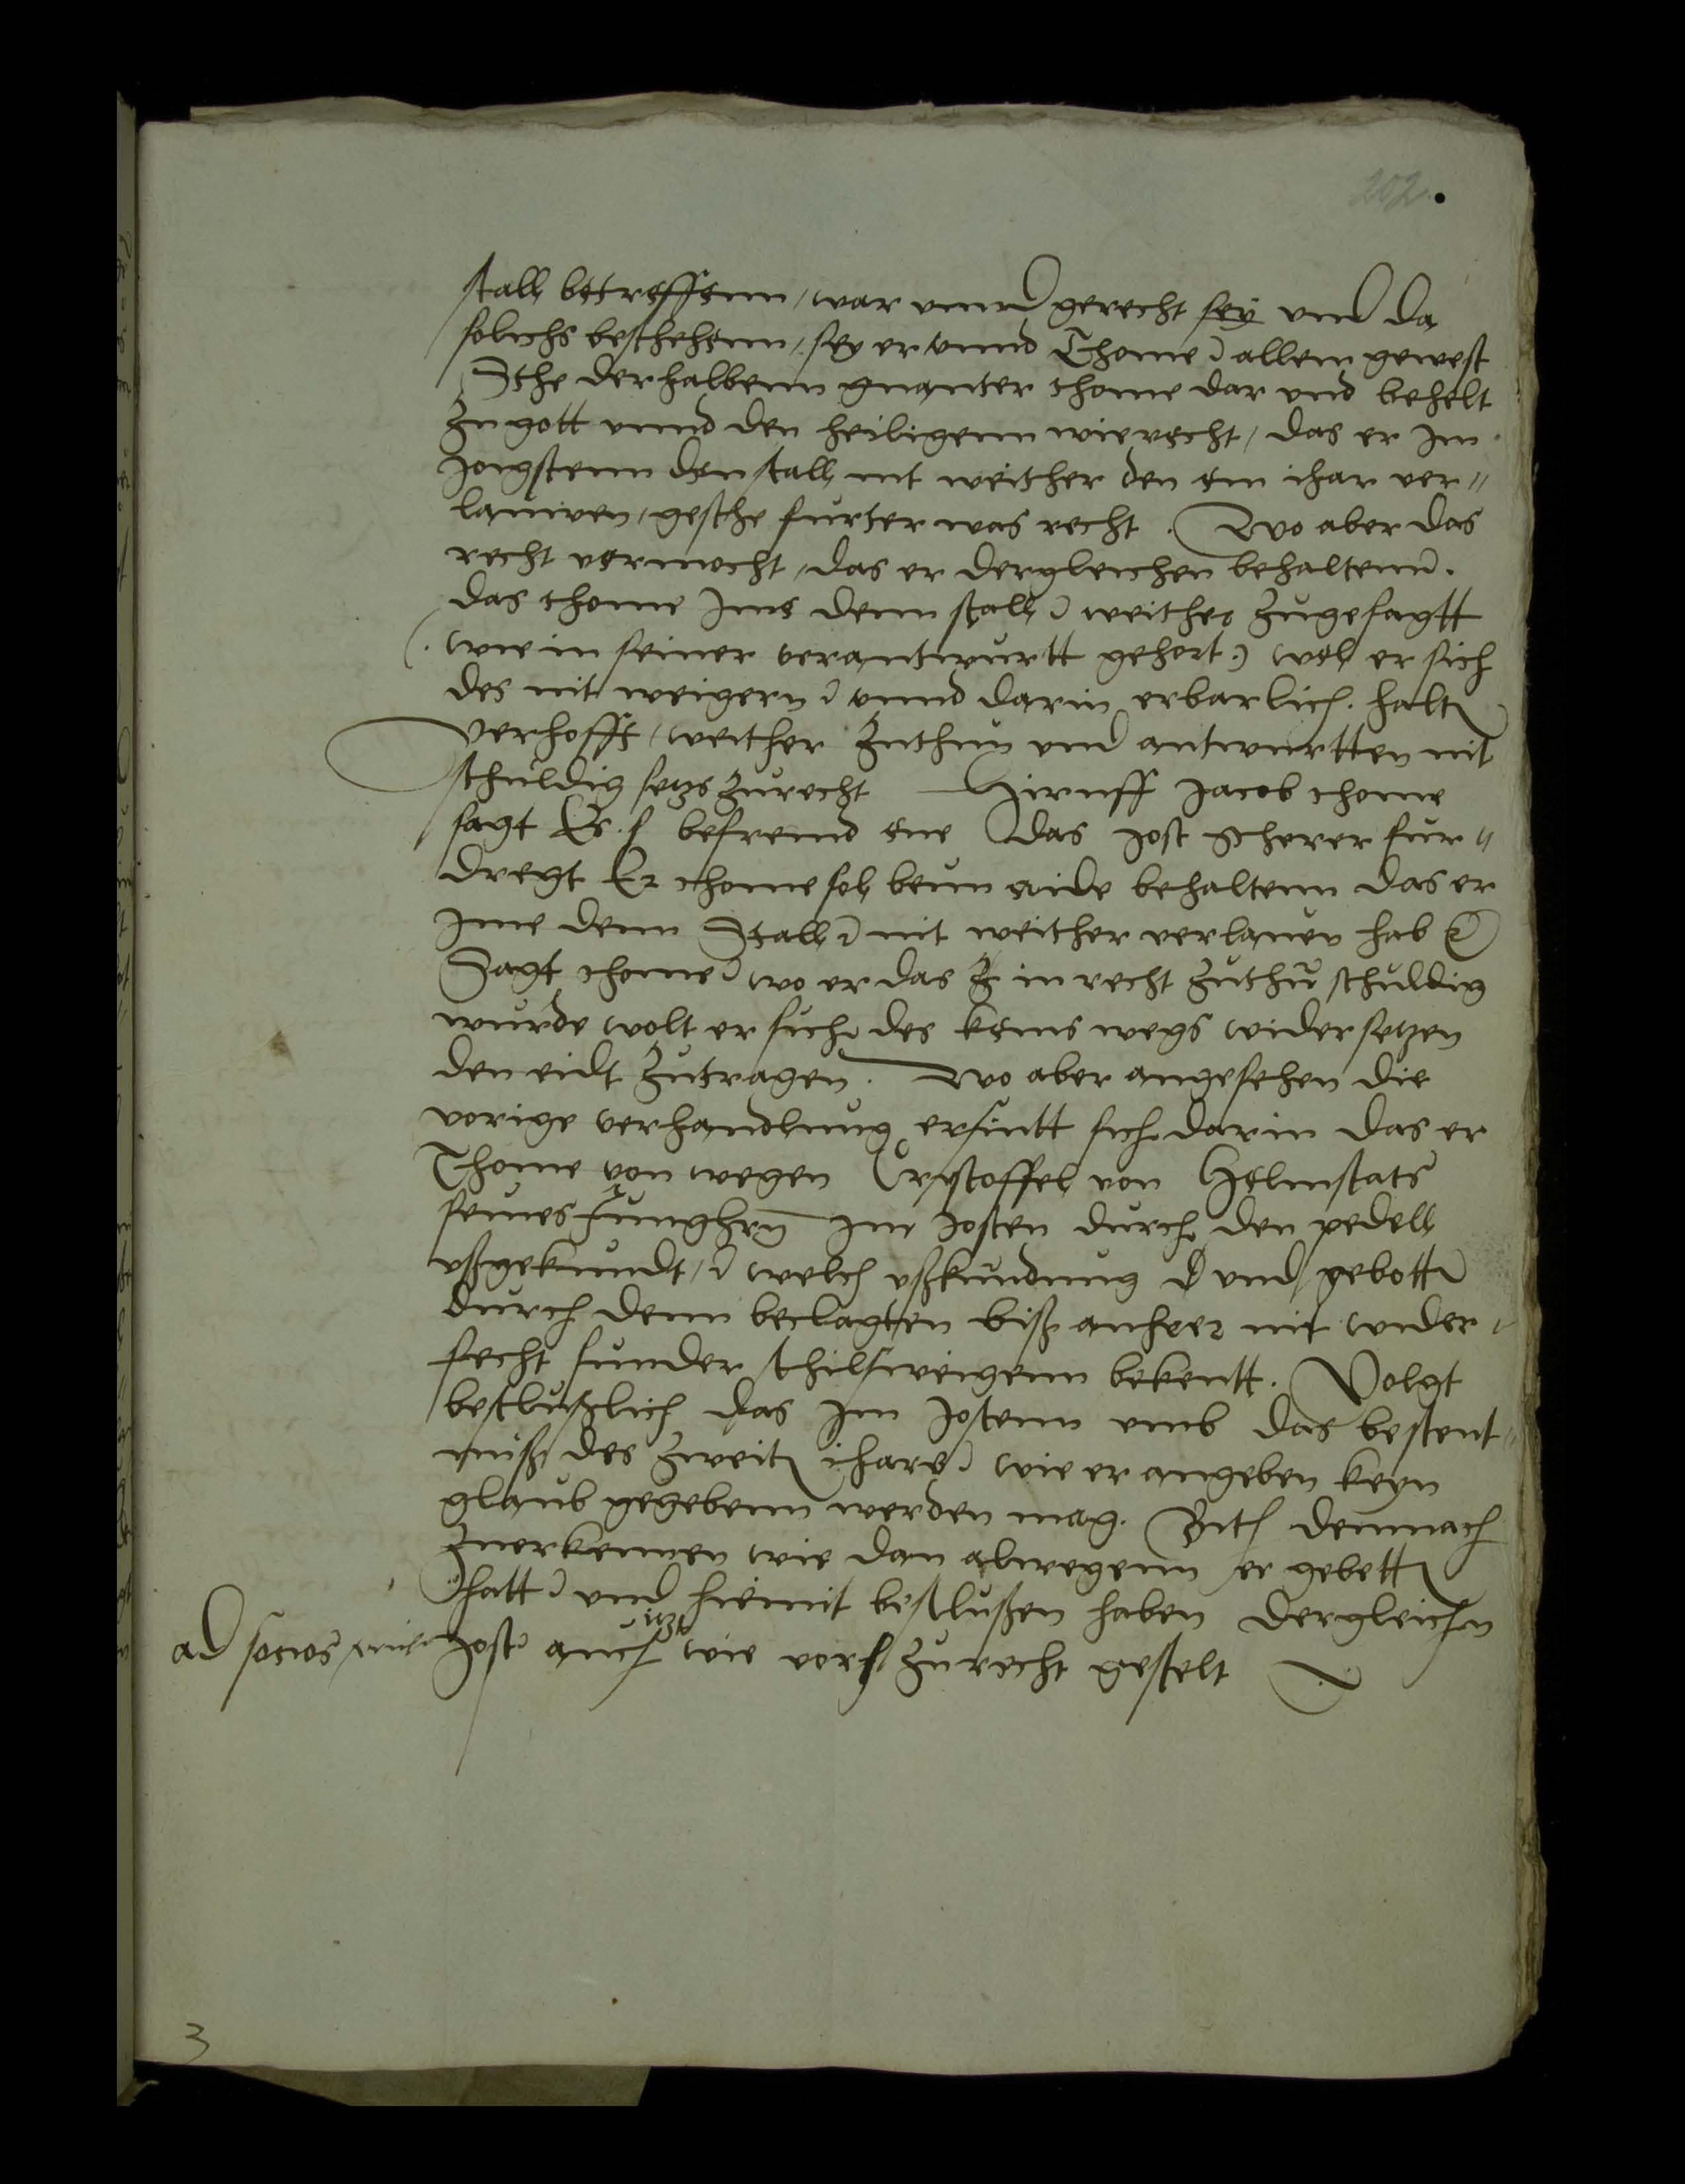 202.
stall betreffenn, war unnd gerecht sey und da
solichs beschehenn, sey er unnd Thome allein gewest
Stehe derhalbenn gnanter thome dar und behelt
zu gott unnd den heiligenn wie recht, das er Im
Jongstenn den stall nit weither den ein ihar ver„
lauwen, geschehe furter was recht. Wo aber das
recht vermocht, das er dergleichen behaltenn.
das thome Ime denn stall weither zugesagtt
(. wie in seiner verantwurtt gehort :) wol er sich
des nit weigern unnd darin erbarlich halten
verhofft, weither zuthun und antwurtten nit
schuldig setzs zurecht Hieruff Jacob thome
sagt Es befremd ene das Jost Scherer fur„
dregt Er thome sol beim aide behaltenn das er
Ime denn Stall nit weither verlauen hab
Sagt thome wo er das in recht zuthun schuldig
wurde wolt er sich des keins wegs widersetzen
den eidt zutragen. Wo aber angesehen die
vorige verhandlung ersintt sich darin das er
Thome von wegen Cristoffel von Helmstats
seines Junghern Im Josten durch den pedell
ußgekundt, welch ußkundung und gebott
durch denn beclagten biß anheer nit wider„
fecht sunder stilsweigenn bekentt. Volgt
beslußlich das Im Jostenn umb das bestent„
nuß des zweiten ihars wie er angeben keyn
glaub gegebenn werden mag. Bith demnach
zuerkennen wie dan alwegenn er gebetten
hatt und hiemit beslußen haben dergleichen
Jost auch itzt wie vor zurecht gestelt
ad socios
3